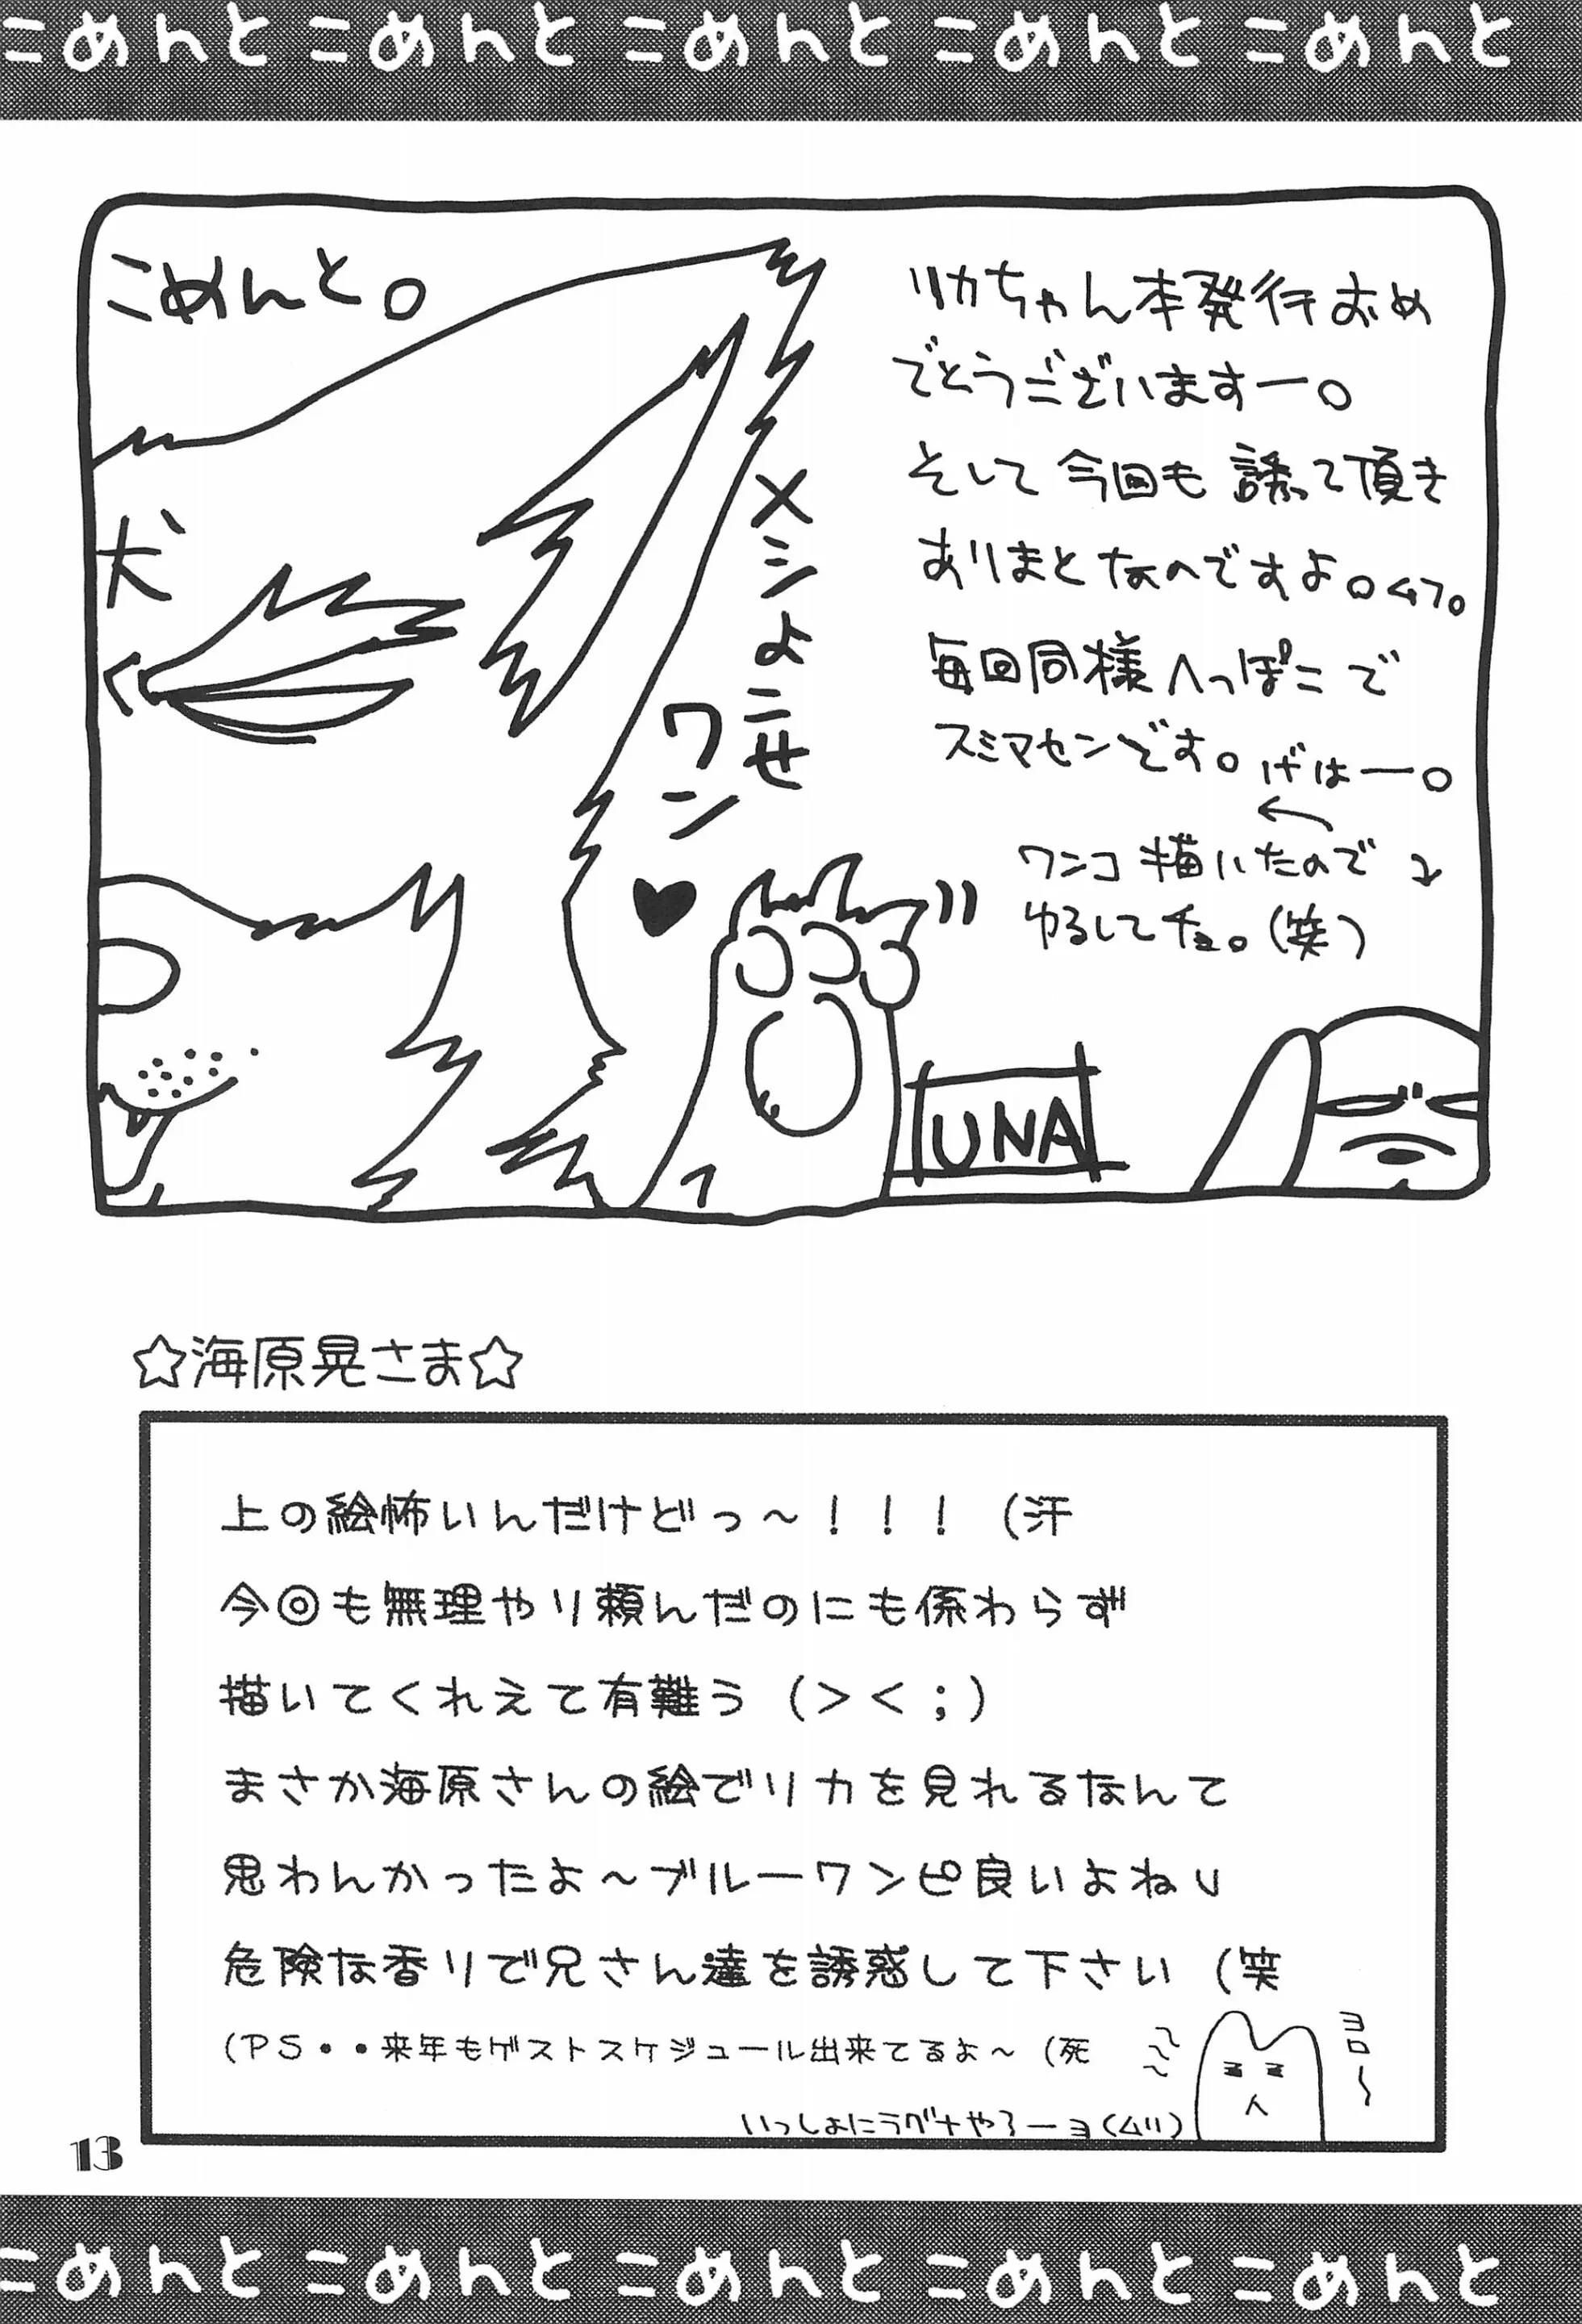 こめんと こめんと こめんと こめんと こめんと
こめんと。
犬
メシよこせ
ワン
リカちゃん本発行おめ
でとうございますー。
そして今回も誘って頂き
ありまとなのですよ。
毎回同様へっぽこで
スミマセンです。げはー。
ワンコ描いたので
ゆるしてチョ。(笑)
UNA
☆海原晃さま☆
上の絵怖いんだけどっ~!!!(汗
今◎も無理やり頼んだのにも係わらず
描いてくれえて有難う(><;)
まさか海原さんの絵でリカを見れるなんて
思わんかったよ~ブルーワンピ良いよね
危険な香りで兄さん達を誘惑して下さい(笑
(PS・・来年もゲストスケジュール出来てるよ~(死
ヨロ~
いっしょにラグナやろーヨ(ムリ)
13
こめんと こめんと こめんと こめんと こめんと